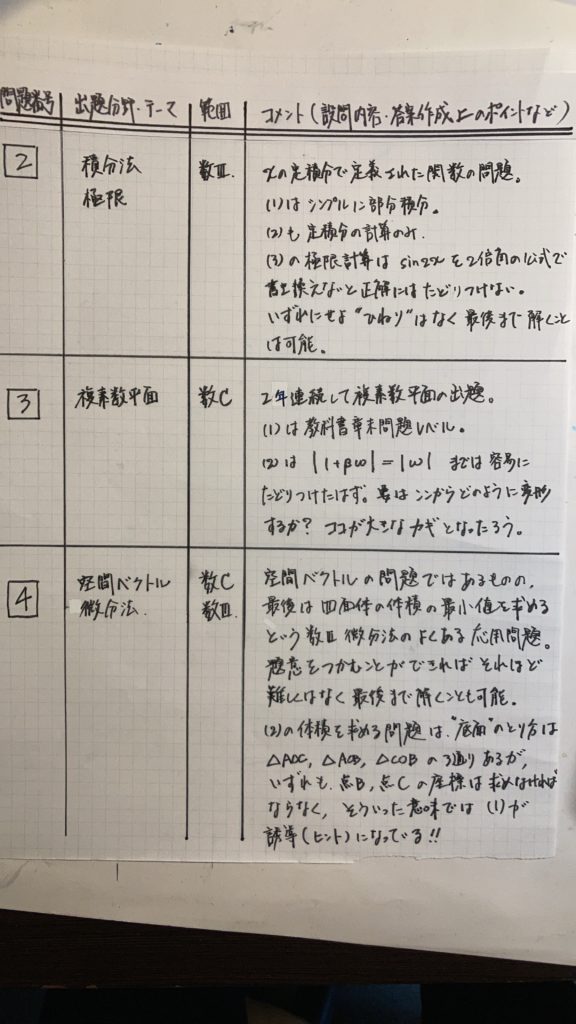 問題番号 出題分野・テーマ 範囲 コメント(設問内容・答案作成上のポイントなど)
2 積分法 数Ⅲ. xの定積分で定義された関数の問題。
極限 (1)はシンプルに部分積分。
(2)も定積分の計算のみ.
(3)の極限計算は sin2xを2倍角の公式で
書き換えないと正解にはたどりつけない。
いずれにせよ"ひねり"はなく最後まで解くこと
は可能。
3 複素数平面 数C 2年連続して複素数平面の出題。
(1)は教科書章末問題レベル。
(2)は |1+βω|=|ω| までは容易に
たどりつけたはず。 はココからどのように変形
するか? ココが大きなカギとなったろう。
4 空間ベクトル 数C 空間ベクトルの問題ではあるものの,
微分法. 数Ⅲ. 最後は四面体の体積の最小値を求める
という数Ⅲ微分法のよくある応用問題。
題意をつかむことができればそれほど
難しくはなく最後まで解くことも可能。
(2)の体積を求める問題は、"底面"のとり方は
△AOC, △AOB, △COBの3通りあるが,
いずれも、点B, 点Cの座標は求めなければ
ならなく, そういった意味では(1)が
誘導(ヒント)になっている!!